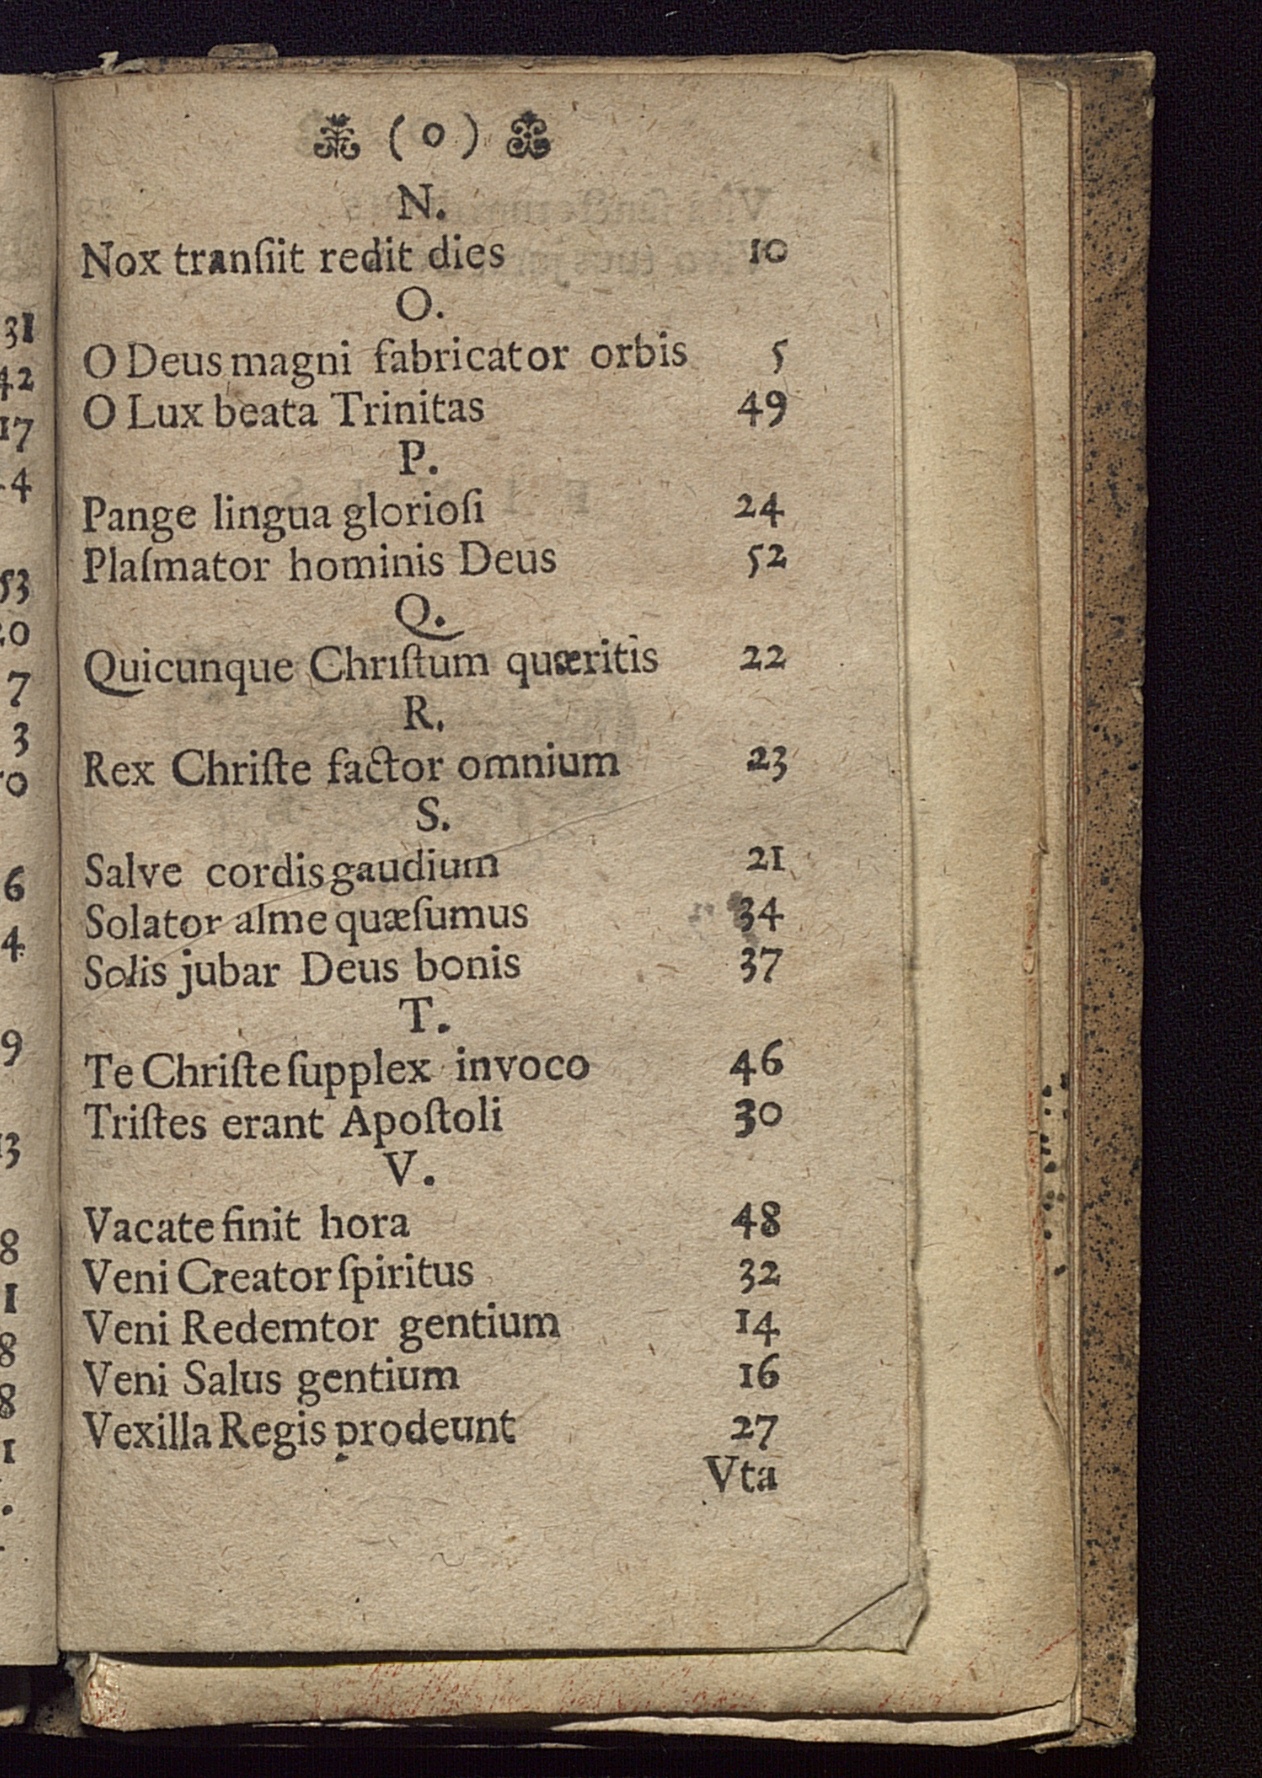 (0)
N.
Nox tranſiit redit dies 10
O.
O Deus magni fabricator orbis 5
O Lux beata Trinitas 49
P.
Pange lingua glorioſi 24
Plaſmator hominis Deus 52
Q.
Quicunque Chriſtum quæritis 22
R.
Rex Chriſte factor omnium 23
S.
Salve cordis gaudium 21
Solator alme quæſumus 34
Solis jubar Deus bonis 37
T.
Te Chriſte ſupplex invoco 46
Triſtes erant Apoſtoli 30
V.
Vacate finit hora 48
Veni Creator ſpiritus 32
Veni Redemtor gentium 14
Veni Salus gentium 16
Vexilla Regis prodeunt 27
Vta